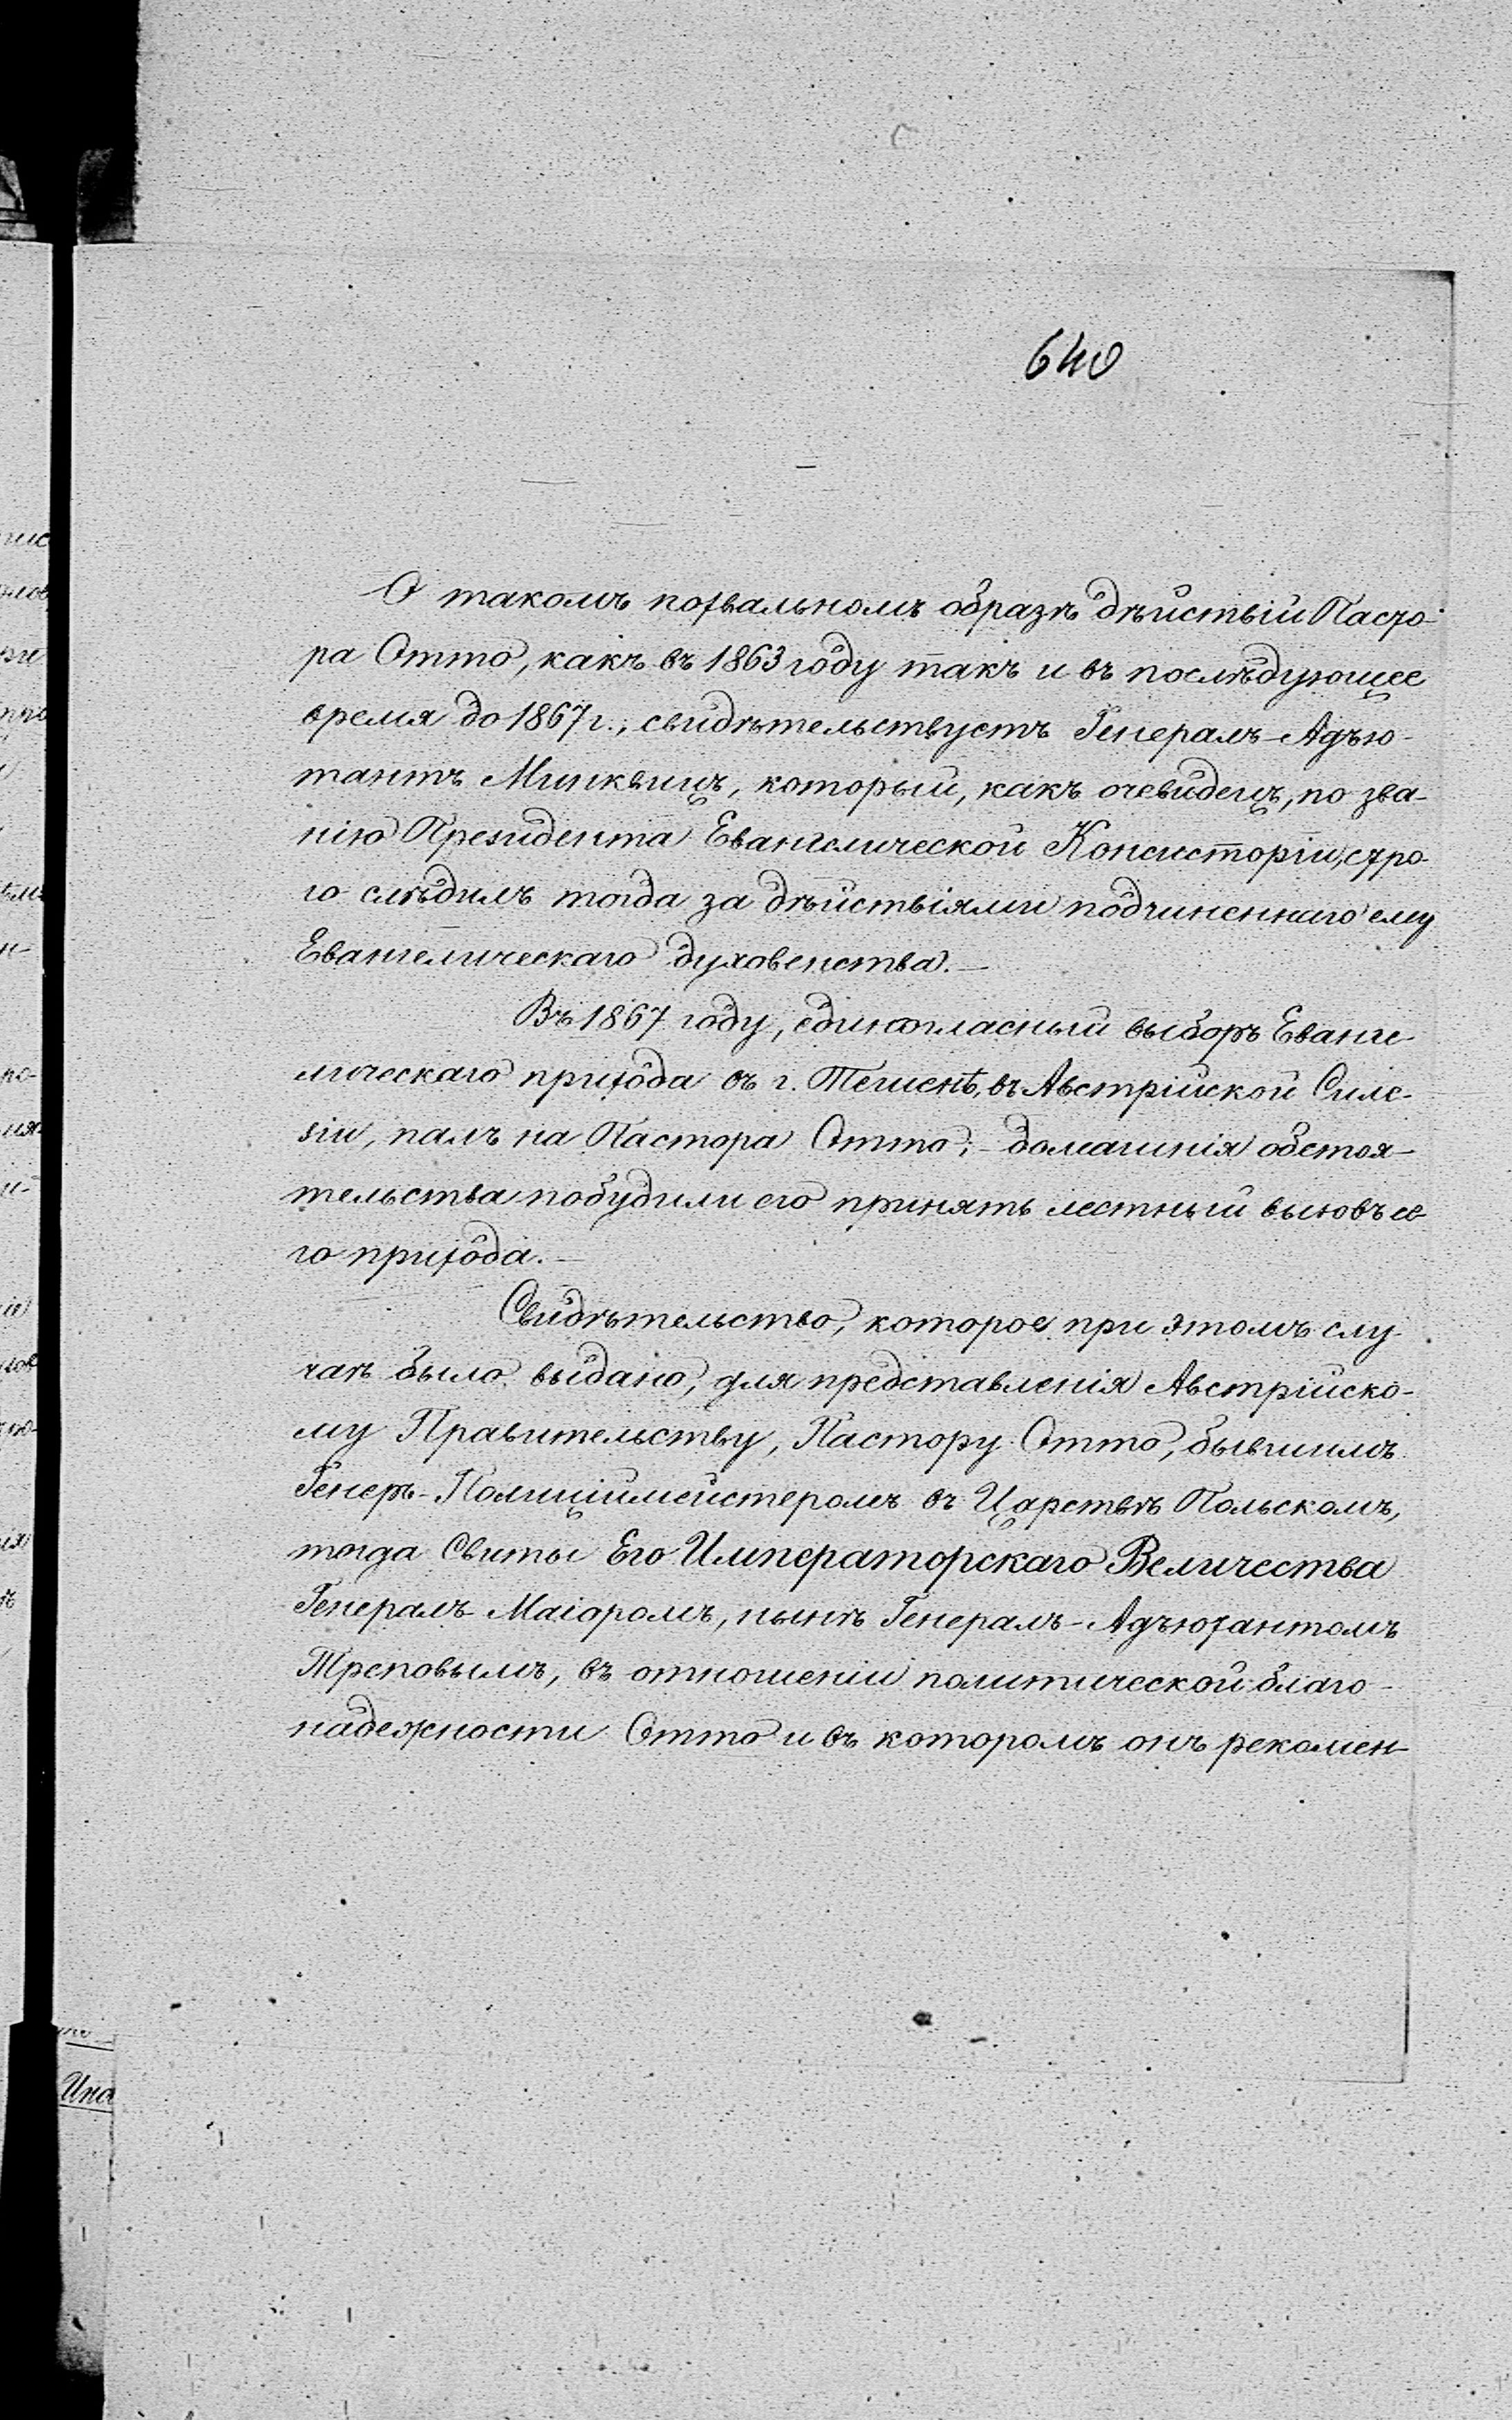 640
О такомъ похвальномъ образѣ дѣйствій Пасто-
ра Отто, какъ въ 1863 году такъ и въ послѣдующее
время до 1867 г., свидѣтельствуетъ Генералъ-Адъю-
тантъ Минквицъ, который, какъ очевидецъ, по зва-
нію Президента Евангелической Консисторіи, стро-
го слѣдилъ тогда за дѣйствіями подчиненнаго ему
Евангелическаго духовенства.—
Въ 1867 году, единогласный выборъ Еванге-
лическаго прихода въ г. Тешенѣ, въ Австрійской Силе-
зіи, палъ на Пастора Отто;- домашнія обстоя-
тельства побудили его принять лестный вызовъ се-
го прихода.—
Свидѣтельство, которое при этомъ слу-
чаѣ было выдано, для представленія Австрійско-
му Правительству, Пастору Отто, бывшимъ
Генер.-Полиціймейстеромъ въ Царствѣ Польскомъ,
тогда Свиты Его Императорскаго Величества
Генералъ-Маіоромъ, нынѣ Генералъ-Адъютантомъ
Треповымъ, въ отношеніи политической благо-
надежности Отто и въ которомъ онъ рекомен-